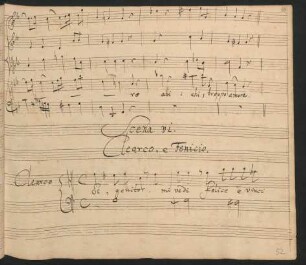 ro ahi, ahi, troppo amore
Scena vi.
Clearco, e Fenicio.
Clearco
Sì, genitor mi vedi felice e vinci